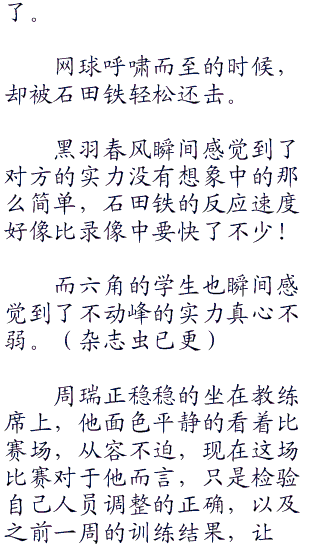 了。
网球呼啸而至的时候，
却被石田铁轻松还击。
黑羽春风瞬间感觉到了
对方的实力没有想象中的那
么简单，石田铁的反应速度
好像比录像中要快了不少！
而六角的学生也瞬间感
觉到了不动峰的实力真心不
弱。（杂志虫已更）
周瑞正稳稳的坐在教练
席上，他面色平静的看着比
赛场，从容不迫，现在这场
比赛对于他而言，只是检验
自己人员调整的正确，以及
之前一周的训练结果，让